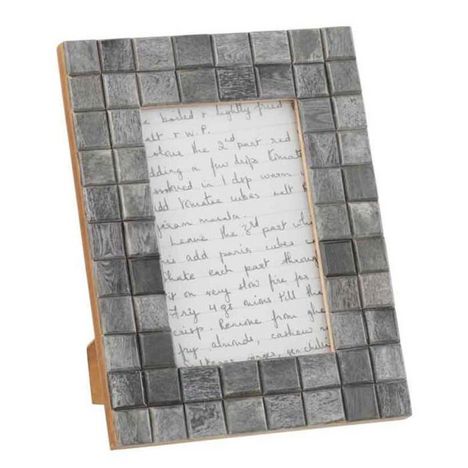 boiled & lightly fried
salt & W.P.
the 2nd part red
adding a few drops tomato
dissolved in 1 dsp warm
add tomatoe cubes salt &
garam masala.
Leave the 3rd part whi
add paris cubes
each part throu
it on very slow fire for
Fry 4 gs onions till the
crisp. Remove from ghe
fry almonds, cashew n